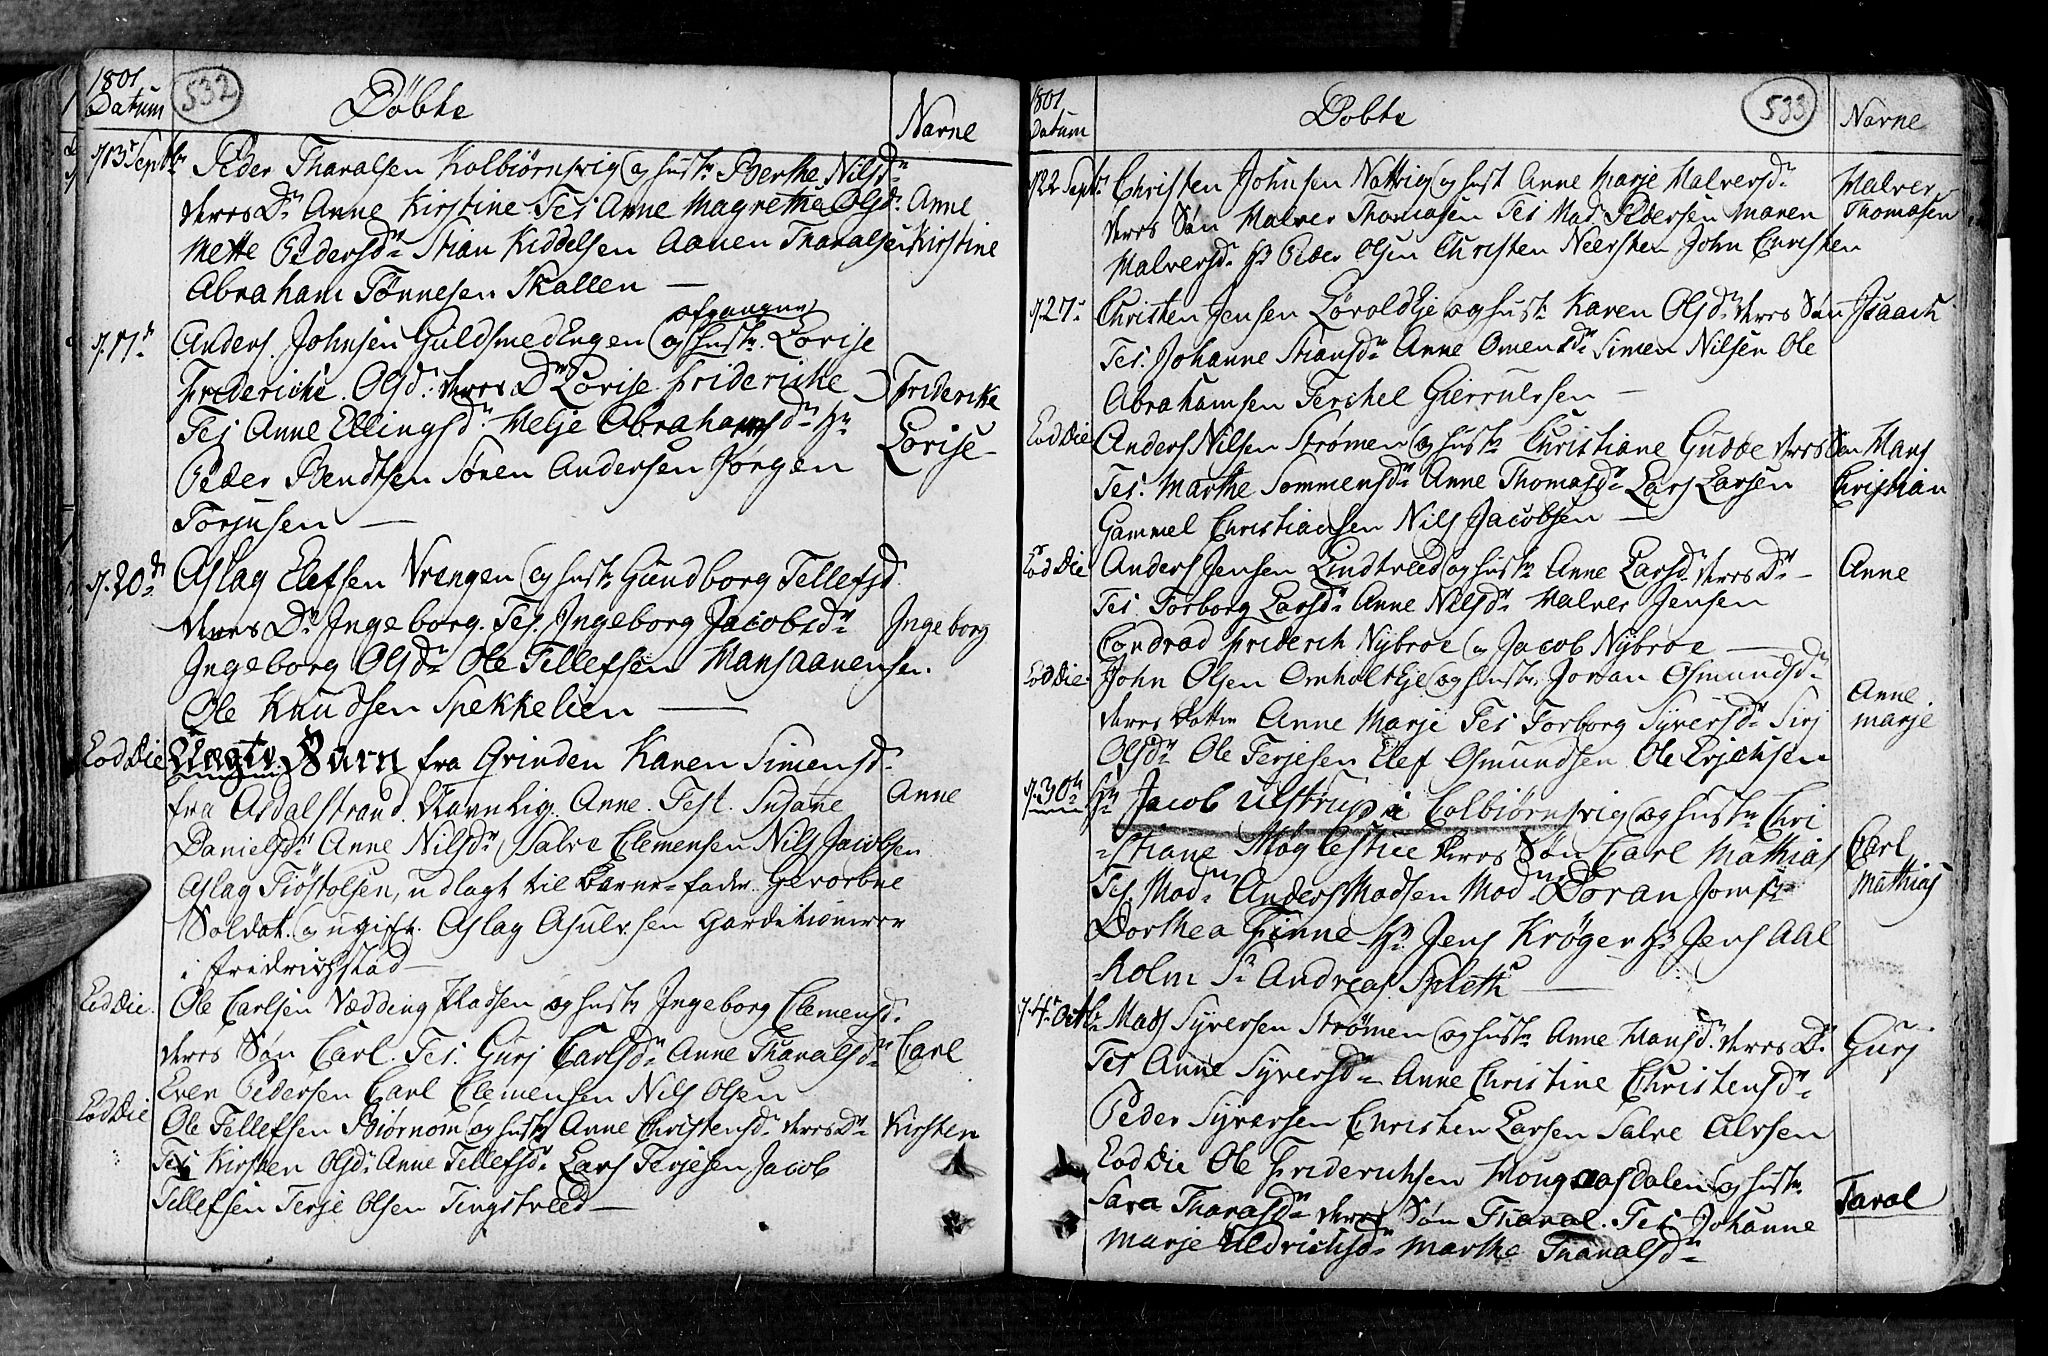 1801
Datum
532
Döbte
Navne
d. 13 Septbr
Peder Tharalsen Kolbiörnsvig og hustr. Berthe Nilsdr
deres Dr Anne Kirstine. Tes Anne Magrethe Olsdr. Anne
Mette Pedersdr Stian Kiddelsen Aanen Tharalsen Kirstine
Abraham Tönnesen Skallen —
afgangne
d. 17de
Anders Johnsen Guldsmedengen og hustr. Lovise
Frideriche Olsd. deres Dr Lovise Friderike Friderike
Tes Anne Ellingsdr. Helje Abrahamsdr Hr
Lovise
Peder Bendtsen Sören Andersen Jörgen
Torjusen —
d. 20de
Aslag Elefsen Vrengen og hustr. Gundborg Tellefsd.
deres Dr Ingeborg. Tes. Ingeborg Jacobsdr Ingeborg
Ingeborg Olsdr Ole Tellefsen Hans Aanensen.
Ole Knudsen Spekkelien —
Eod Die
Uægte Barn fra Grinden Karen Simensd.
fra Asdalstrand Navnlig Anne. Test. Susane Anne
Danielsdr Anne Nilsdr Salve Clemensen Nils Jacobsen
Aslag Tiöstolsen, udlagt til Barne-fader Gevorbne
Soldat og ugift. Aslag Asulvsen Garditionerer
i Fredrichstad —
Eod Die.
Ole Carlsen Vædding Kladsen og hustr Ingeborg Clemensd.
deres Sön Carl. Tes. Gurj Carlsdr Anne Tharalsdr Carl
Even Pedersen Carl Clemensen Nils Olsen
Eod Die
Ole Tellefsen Biörnom og hustr Anne Christensd. deres Dr Kirsten
Tes Kirsten Olsdr Anne Tellefsdr Lars Terjesen, Jacob
Tellefsen Terje Olsen Tingstveed —
1801
Datum
Dobte
533
Navne
d. 22 Septr
Christen Johnsen Nattvig og hust Anne Marje Malversdr Malver
deres Sön Malver Thomasen Tes Mad. Pedersen Maren Thomasen
Malversdr Hr Peder Olsen Christen Neersten John Christen
d. 27.
Christen Jensen Lövold Eje og hustr Karen Olsdr deres Sön Isaach
Tes. Johanne Stiansdr Anne Omensdr Simen Nilsen Ole
Abrahamsen Terchel Gierrulvsen —
Eod Die
Anders Nilsen Strömen og hustr Christiane Gudde deres Sön Hans
Tes. Marthe Sommensdr Anne Thomasdr Lars Larsen Christian
Gammel Christiansen Nils Jacobsen —
Eod Die
Anders Jensen Lindtveed og hustr Anne Larsd deres Dr — Anne
Tes Torborg Larsdr Anne Nilsdr Malver Jensen
Condrad Friderich Nybroe og Jacob Nybroe —
Eod Die
John Olsen Omholt Eje og hustr. Joran Osmundsdr
deres Datter Anne Marje Tes Torborg Syversdr Sirj Anne
marje
Olsdr Ole Terjesen Elef Osmundsen Ole Erichsen
d. 30te
Hr Jacob Ulstrup i Colbiörnsvig og hustr Chri
=stiane Möglestue deres Sön Carl Mathias Carl
Mathias
Tes. Mad. Anders Madsen Mad. Doran Jomfr
Dorthea Finne Hr Jens Kröger Hr Jens Aal
=holm Sr Andreas Spleth —
d. 4de Octbr
Mads Syversen Strömen og hustr Anne Hansd. deres Dr Gurj
Tes Anne Syversdr Anne Christine Christensdr
Peder Syversen Christen Larsen Salve Alvsen
Eod Die Ole Friderichsen Houg Aasdalen og hustr
Sara Tharalsdr deres Sön Tharal. Tes Johanne Taral
Marje Uldrichsdr Marthe Tharalsdr